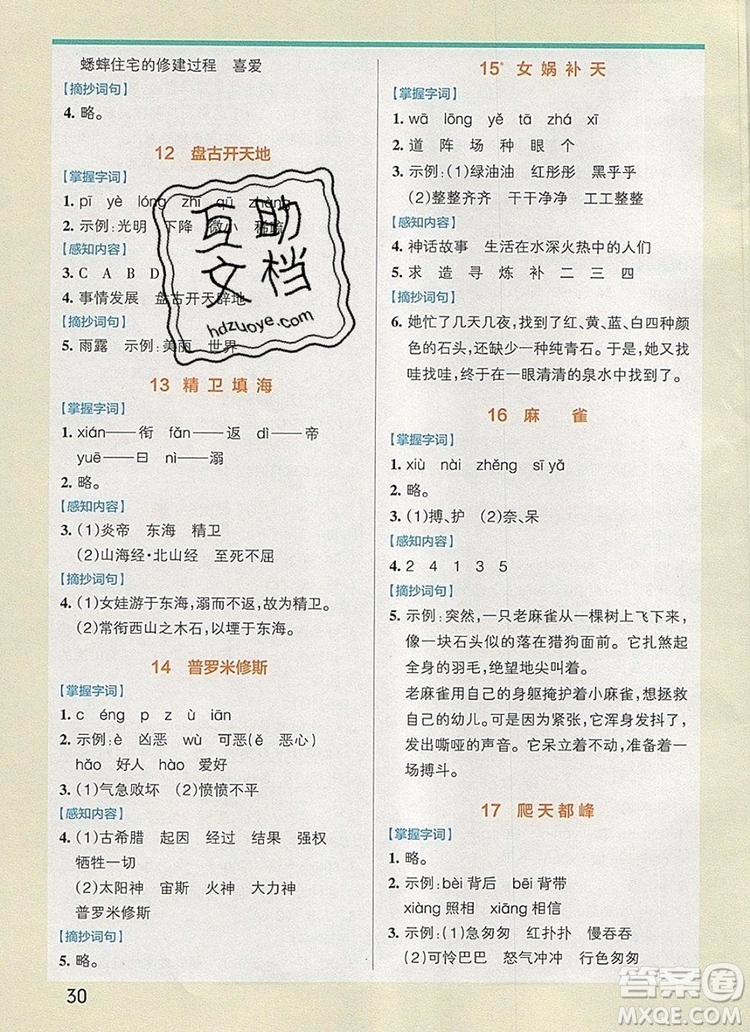 蟋蟀住宅的修建过程 喜爱
【摘抄词句】
4. 略。
12 盘古开天地
【掌握字词】
1. pī yè lóng zhī qū zhàng
2. 示例:光明 下降 微小 稀
【感知内容】
3. C A B D
4. 事情发展 盘古开天辟地
【摘抄词句】
5. 雨露 示例:美丽 世界
13 精卫填海
【掌握字词】
1. xián——衔 fǎn——返 dì——帝
yuē——曰 nì——溺
2. 略。
【感知内容】
3. (1)炎帝 东海 精卫
(2)山海经·北山经 至死不屈
【摘抄词句】
4. (1)女娃游于东海,溺而不返,故为精卫。
(2)常衔西山之木石,以堙于东海。
14 普罗米修斯
【掌握字词】
1. c éng p z ù iān
2. 示例:è 凶恶 wù 可恶(ě 恶心)
hǎo 好人 hào 爱好
3. (1)气急败坏 (2)愤愤不平
【感知内容】
4. (1)古希腊 起因 经过 结果 强权
牺牲一切
(2)太阳神 宙斯 火神 大力神
普罗米修斯
【摘抄词句】
5. 略。
30
15* 女娲补天
【掌握字词】
1. wā lōng zhēn tā zhá xī
2. 道 阵 场 种 眼 个
3. 示例:(1)绿油油 红彤彤 黑乎乎
(2)整整齐齐 干干净净 工工整整
【感知内容】
4. 神话故事 生活在水深火热中的人们
5. 求 造 寻 炼 补 二 三 四
【摘抄词句】
6. 她忙了几天几夜,找到了红、黄、蓝、白四种颜
色的石头,还缺少一种纯青石。于是,她又找
哇找哇,终于在一眼清清的泉水中找到了。
16 麻雀
【掌握字词】
1. xiù nài zhěng sī yǎ
2. 略。
3. (1)搏、护 (2)奈、呆
【感知内容】
4. 2 4 1 3 5
【摘抄词句】
5. 示例:突然,一只老麻雀从一棵树上飞下来,
像一块石头似的落在猎狗面前。它挓挲起
全身的羽毛,绝望地尖叫着。
老麻雀用自己的身躯掩护着小麻雀,想拯救
自己的幼儿。可是因为紧张,它浑身发抖了,
发出嘶哑的声音。它呆立着不动,准备着一
场搏斗。
17 爬天都峰
【掌握字词】
1. 略。
2. 示例:bèi 背后 bēi 背带
xiàng 照相 xiāng 相信
3. 示例:(1)急匆匆 红扑扑 慢吞吞
(2)可怜巴巴 怒气冲冲 行色匆匆
互助
文档
hdzuoye.com
答案圈
MXQE.COM